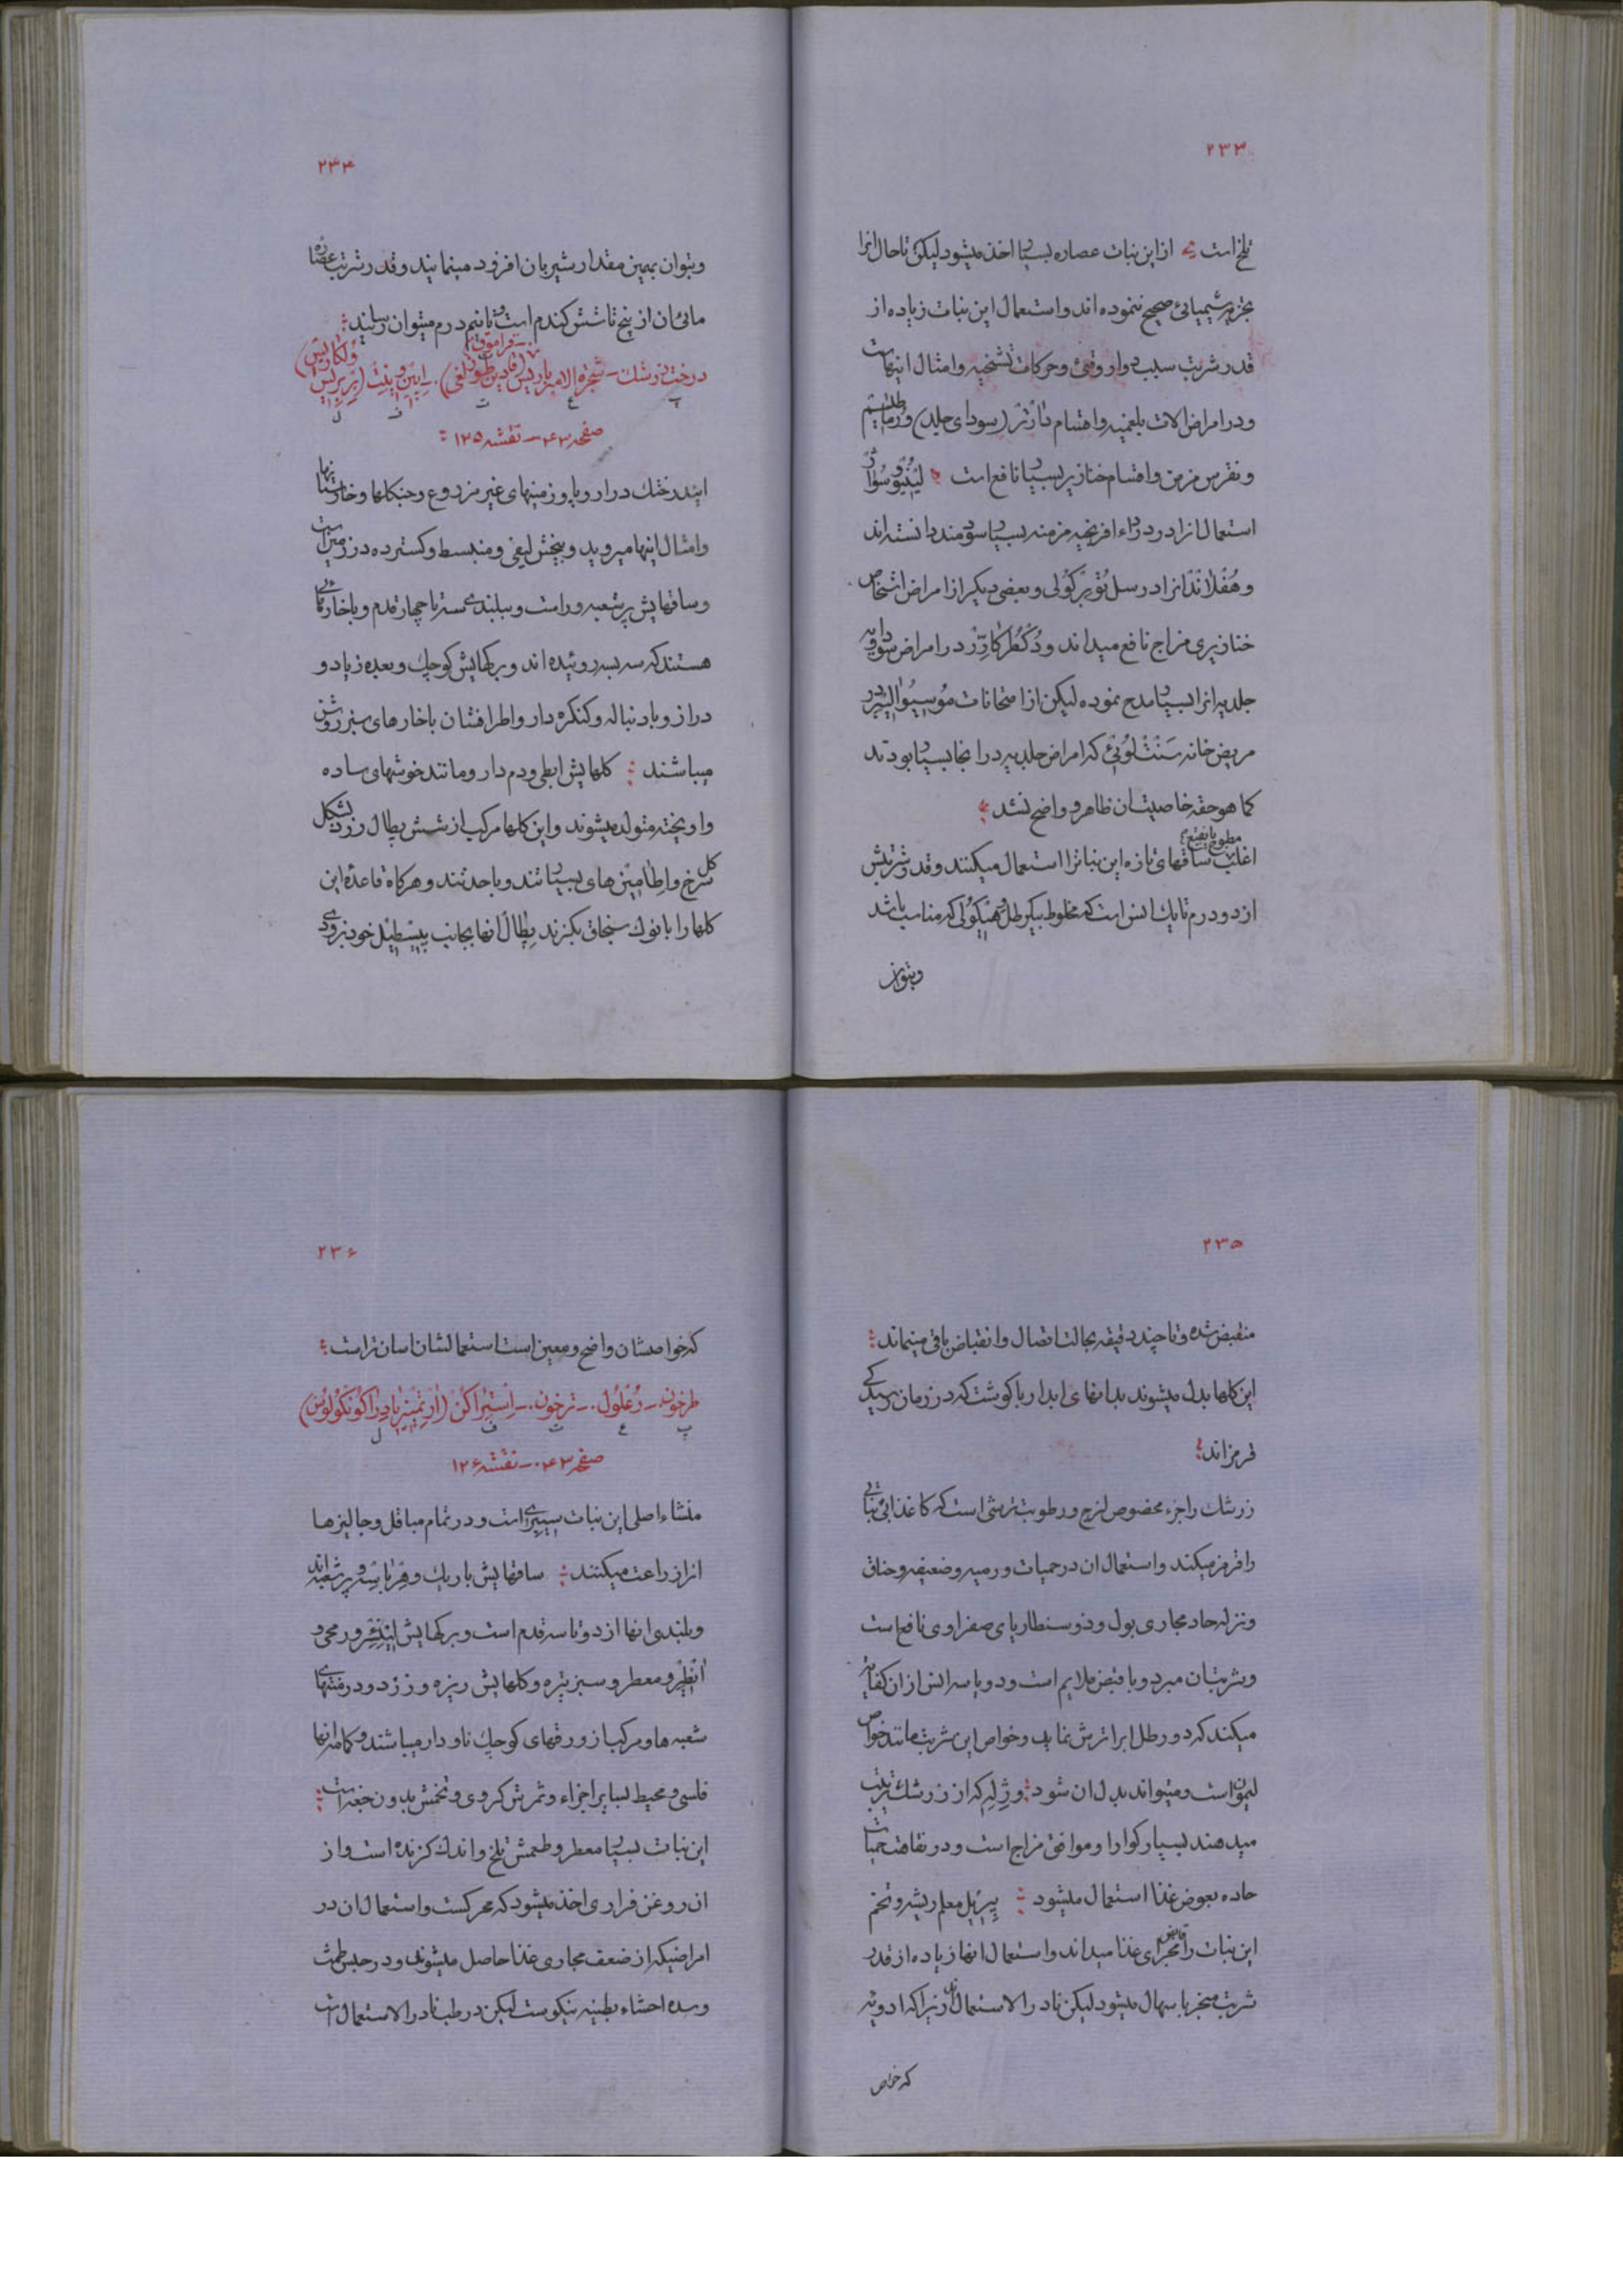 ۲۳۳
تلخ است از این نبات عصاره بسیار اخذ میشود لیکن تا حال انرا
بتجزیه شیمیائی صحیح ننموده اند و استعمال این نبات زیاده از
قدر شربت سبب دوار و قیئ و حرکات تشنجیه و امثال اینهاست
و در امراض الات بلغمیه و اقسام دارتر (سودای جلد) و رماتیسم
و نقرس مزمن و اقسام خنازیر بسیار نافع است لینه و
استعمال انرا در داء افرنجیه مزمنه بسیار سودمند دانسته اند
و هفلاند انرا در سل توبرکولی و بعضی دیکر از امراض اشخاص
خنازیری مزاج نافع میداند و دکطر کارر در امراض سوداویه
جلدیه انرا بسیار مدح نموده لیکن از امتحانات موسیو الیبر در
مریض خانه سنت لوئی که امراض جلدیه در انجا بسیار بودند
کما هو حقه خاصیت ان ظاهر و واضح نشد
مطبوخ یا نقیع
اغلب ساقهای تازه این نبات را استعمال میکنند و قدر شربتش
از دو درم تا یک انس است که مخلوط بیکرطل وهیکولی که مناسب باشد
و بتوان
۲۳۴
و بتوان بهمین مقدار شیر بان افزود مینمایند و قدر شربت عصاره
مائی ان از پنج تا شش کندم است و تا نیم درم میتوان رسانید
درخت زرشک – شجرة الامبرباریس – قادین طوزلغی – اپین وینت (بربریس ولکاریس)
پ ع ت ف ل
صفحه ۴۳ – نقشه ۱۲۵
ایندرختک در اروپا و زمینهای غیر مزروع و جنکلها و خارستانها
و امثال اینها میروید و بیخش لیفی و منبسط و کسترده در زمین است
و ساقهایش پر شعبه و راست و ببلندی سه تا چهار قدم و با خارهائی
هستند که سه بسه روئیده اند و برکهایش کوچک و بعده زیاد و
دراز و با دنباله و کنکره دار و اطرافشان با خارهای سبز روشن
میباشند کلهایش ابطی و دم دار و مانند خوشهای ساده
و اویخته متولد میشوند و این کلها مرکب از شش پطال زرد بشکل
کل سرخ و اطامین های بسیار تند و با حدتند و هرکاه قاعده این
کلها را با نوک سنجاق بکزند پطال انها بجانب پیسطیل خود بزودی
۲۳۵
منقبض شده و تا چند دقیقه بحالت اتصال و انقباض باقی میماند
این کلها بدل میشوند بدانهای ابدار با کوشت که در زمان رسیدکی
قرمزاند
زرشک را جزء مخصوص لزج و رطوبت ترشی است که کاغذ ابی نباتی
را قرمز میکند و استعمال ان در حمیات ورمیه و ضعیفه و خناق
و نزله حاد مجاری بول و ذوسنطاریای صفراوی نافع است
و شربت ان مبرد و با قبض ملایم است و دو یا سه انس از ان کفایت
میکند که دو رطل اب را ترش نماید و خواص این شربت مانند خواص
لیمو است و میتواند بدل ان شود و ژله که از زرشک ترتیب
میدهند بسیار کوارا و موافق مزاج است و در نقاهت حمیات
حاده بعوض غذا استعمال میشود پیرپل معلم ریشه و تخم
این نبات را قابض مجرای غذا میداند و استعمال انها زیاده از قدر
شربت منجر باسهال میشود لیکن نادر الاستعمال زیرا که ادویه
که خواص
۲۳۶
که خواصشان واضح و معین است استعمالشان اسان تر است
طرخون – زغلول – ترخون – استراکن (ارتمیزیا دراکونکولوس)
پ ع ت ف ل
صفحه ۴۳ – نقشه ۱۲۶
منشاء اصلی این نبات سیبری است و در تمام مباقل و جالیزها
انرا زراعت میکنند ساقهایش باریک و هرباسه و پر شعبه اند
و بلندی انها از دو تا سه قدم است و برکهایش لینئر و رمحی و
انطیر و معطر و سبز تیره و کلهایش ریزه و زرد و در منتهای
شعبه ها و مرکب از ورقهای کوچک ناو دار میباشند و کاسه انها
فلسی و محیط بسایر اجزاء و ثمرش کروی و تخمش بدون جغه است
این نبات بسیار معطر و طعمش تلخ و اندک کزنده است و از
ان روغن فراری اخذ میشود که محرکست و استعمال ان در
امراضیکه از ضعف مجاری غذا حاصل میشوند و در حبس طمث
و سده احشاء بطنیه نیکوست لیکن در طب نادر الاستعمال است